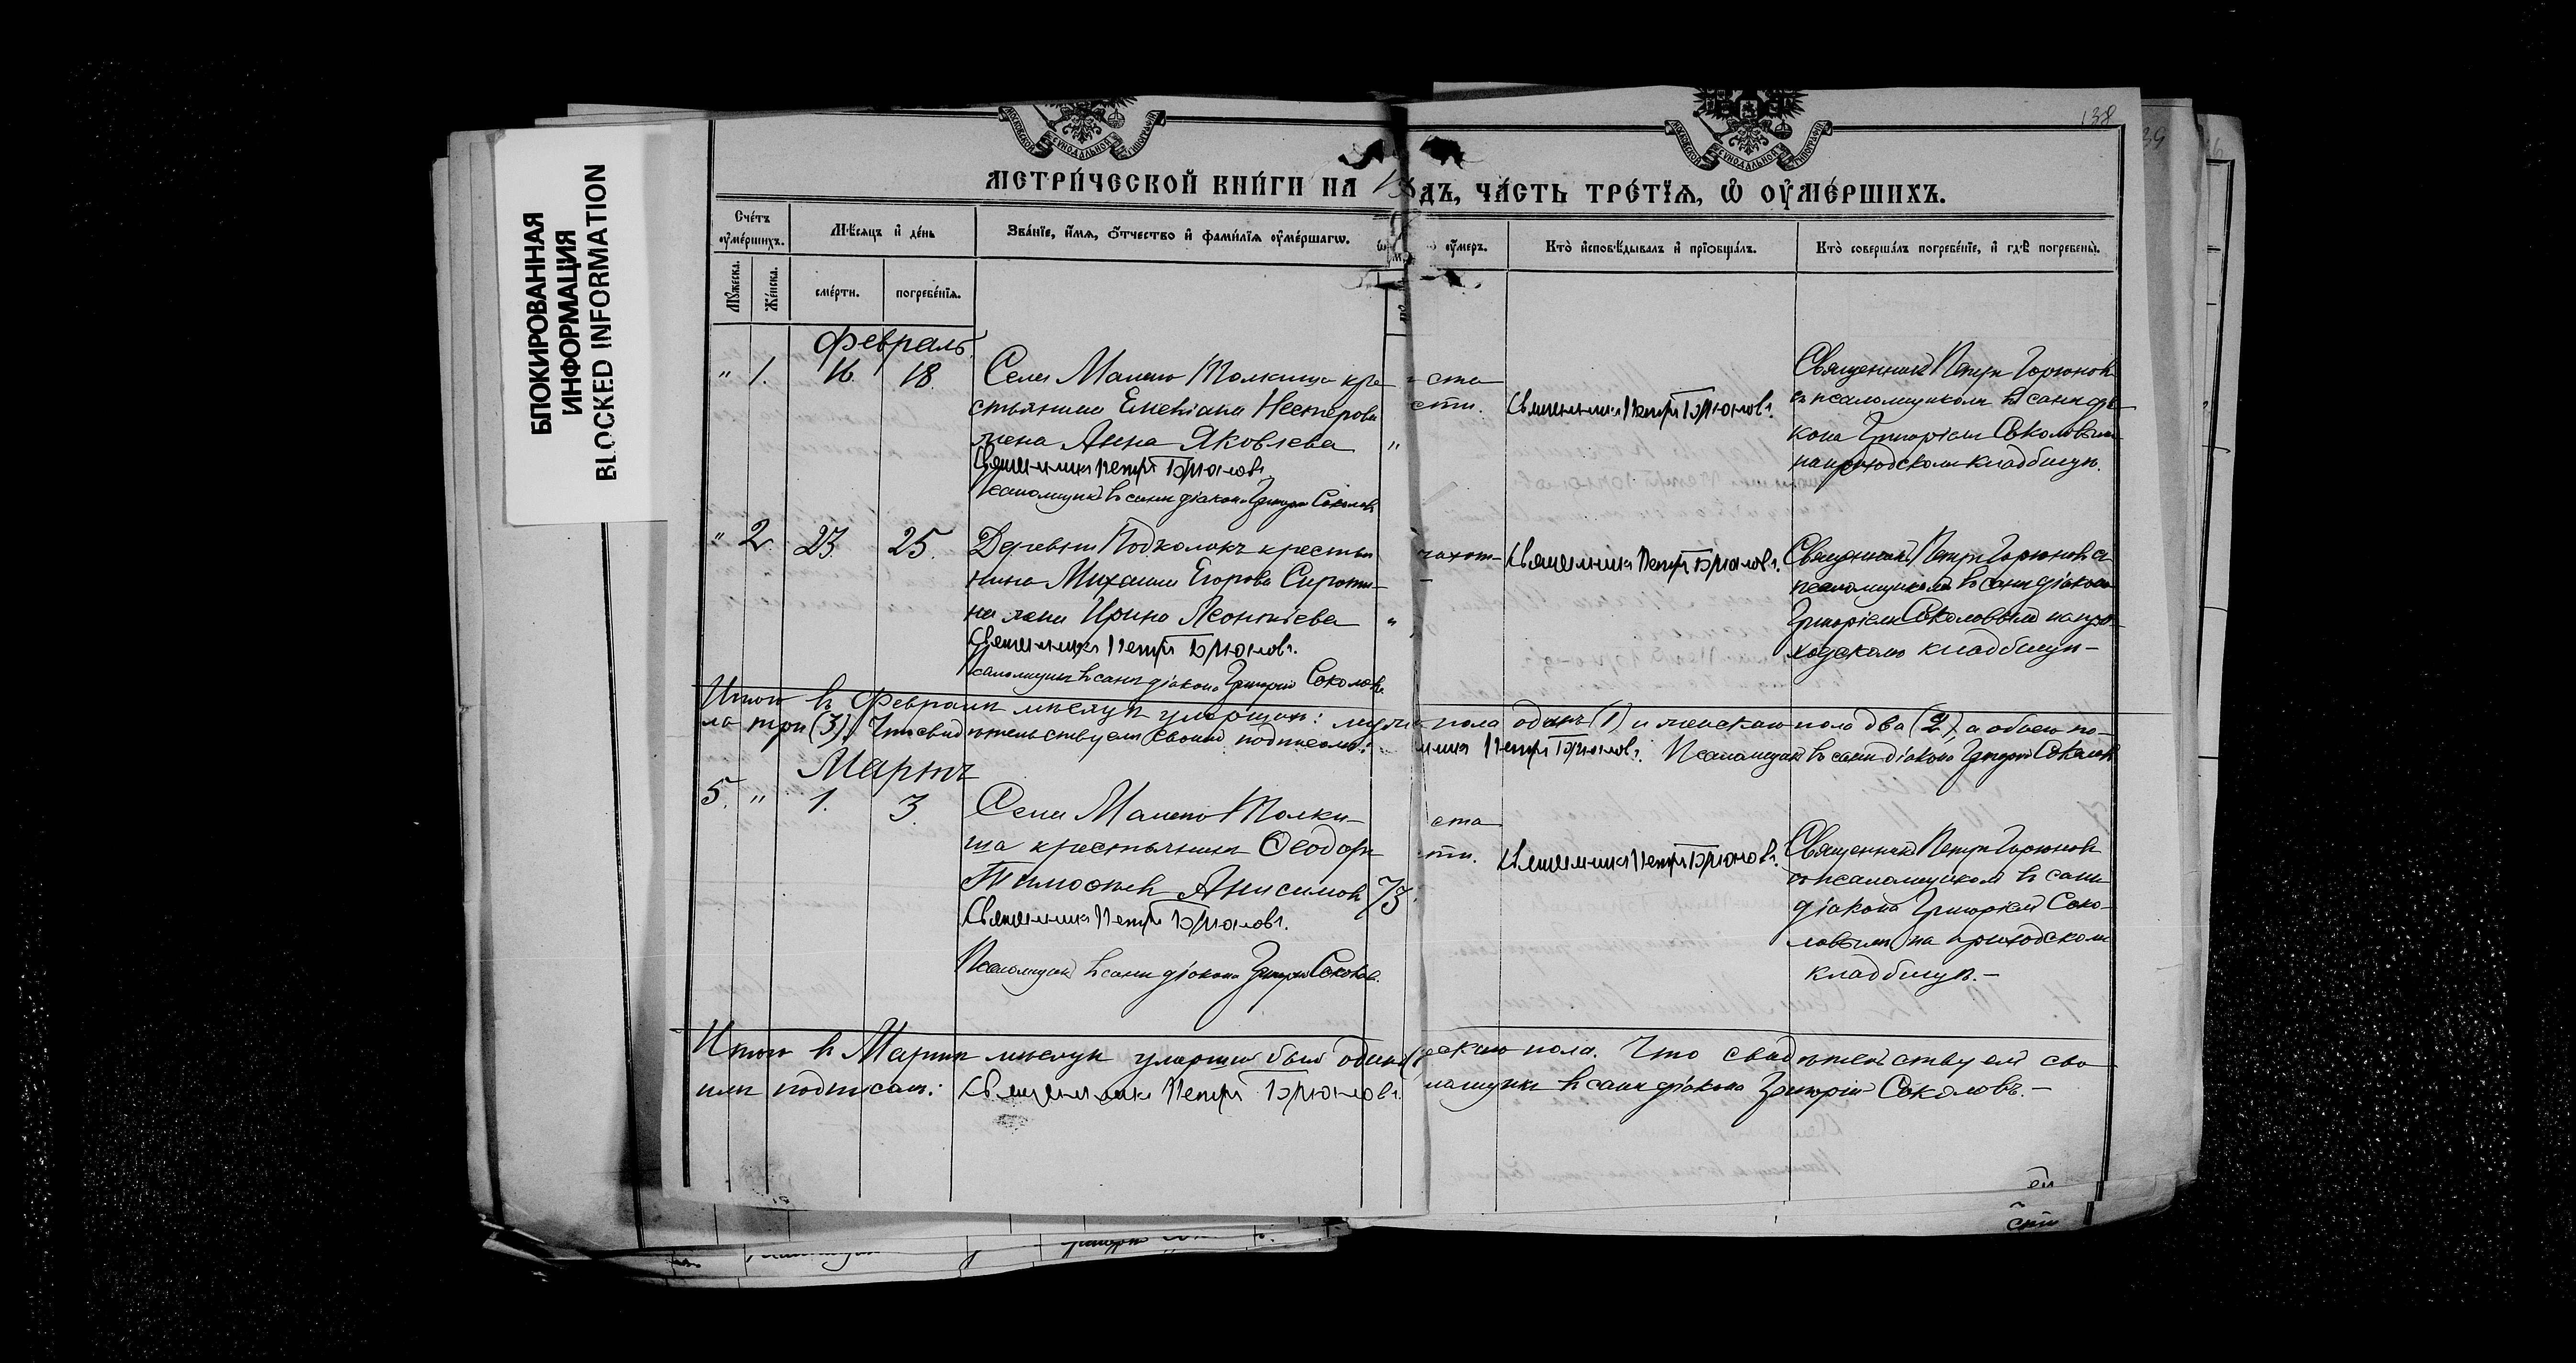 БЛОКИРОВАННАЯ
ИНФОРМАЦИЯ
BLOCKED INFORMATION
138
МЕТРИ́ЧЕСКОЙ КНИ́ГИ НА
ДЪ, ЧА́СТЬ ТРЕ́ТІЯ, Ѡ ОУ҆МЕ́РШИХЪ.
Сче́тъ оу҆ме́ршихъ.
Мѣ́сяцъ и҆ де́нь
Зва́ніе, и҆́мя, о҆́тчество и҆ фами́лія оу҆ме́ршагѡ.
оу҆́меръ.
Кто̀ и҆сповѣ́дывалъ и҆ пріѡбща́лъ.
Кто̀ соверша́лъ погребе́ніе, и҆ гдѣ̀ погребены̀.
Му́жеска.
Же́нска.
сме́рти.
погребе́нія.
Февраль.
" 1. 16. 18. Села Малаго Толкиша кре-
стьянина Нестерова
жена Анна Яковлева "
Священникъ Петръ Горюновъ.
Псаломщикъ въ санѣ діакона Григорій Соколовъ
ста
сти.
Священникъ Петръ Горюновъ.
Священникъ Петръ Горюновъ
съ псаломщикомъ въ санѣ діа-
кона Григоріемъ Соколовымъ
на приходскомъ кладбищѣ.
" 2. 23. 25. Деревни крестья
нина Михаила Егорова Сироти-
на жена Ирина Леонтіева "
Священникъ Петръ Горюновъ.
Псаломщикъ въ санѣ діакона Григорій Соколовъ.
чахот-
Священникъ Петръ Горюновъ.
Священникъ Петръ Горюновъ съ
псаломщикомъ въ санѣ діакона
Григоріемъ Соколовымъ на при-
ходскомъ кладбищѣ-
Итого въ Февралѣ мѣсяцѣ умершихъ: муж пола одинъ (1) и женскаго пола два (2), а обоего по-
ла три (3). Что свидѣтельствуемъ своимъ подписомъ: Петръ Горюновъ. Псаломщикъ въ санѣ діакона Григорій Соколовъ
Мартъ
5. " 1. 3. Села Малаго Толки-
ша крестьянинъ Ѳеодоръ
Тимоѳеевъ Анисимовъ 73.
Священникъ Петръ Горюновъ.
Псаломщикъ въ санѣ діакона Григорій Соколовъ.
ста
сти.
Священникъ Петръ Горюновъ.
Священникъ Петръ Горюновъ
съ псаломщикомъ въ санѣ
діакона Григоріемъ Соко-
ловымъ на приходскомъ
кладбищѣ.-
Итого въ Мартѣ мѣсяцѣ умершій былъ одинъ скаго пола. Что свидѣтельствуемъ сво
имъ подписомъ: Священникъ Петръ Горюновъ. ломщикъ въ санѣ діакона Григорій Соколовъ.-